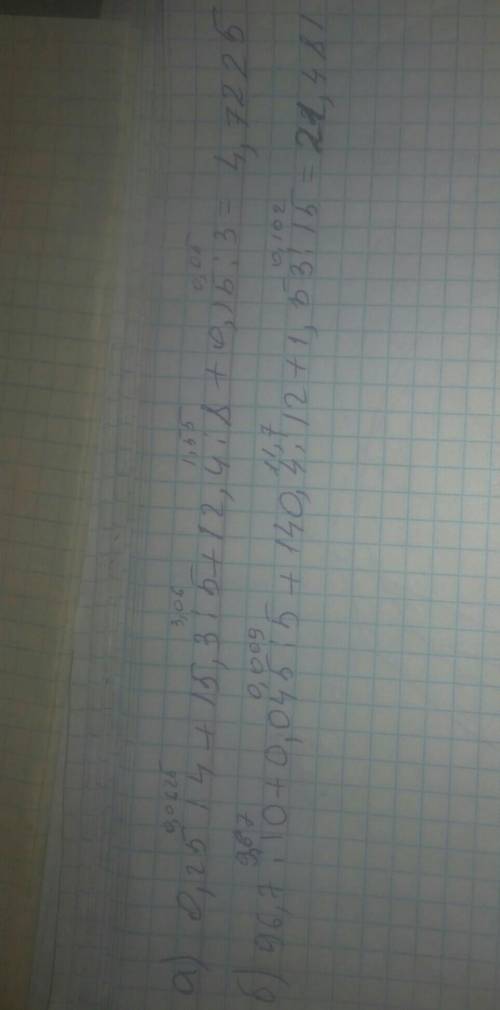 0,0625 3,06 1,55 0,05
а) 0,25 : 4 + 15,3 : 5 + 12,4 : 8 + 0,15 : 3 = 4,7225
9,67 0,009 11,7 0,102
б) 96,7 : 10 + 0,045 : 5 + 140,4 : 12 + 1,53 : 15 = 21,481